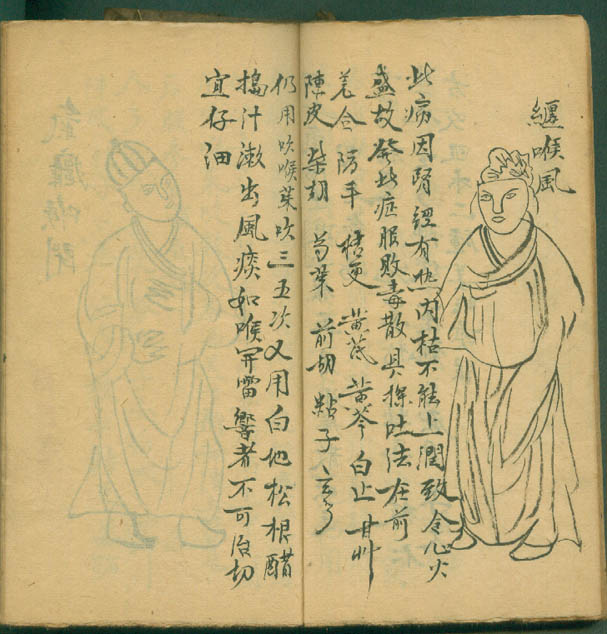 纏喉風
此病因腎經有熱内枯不能上潤致令心火
盛故發此症服敗毒散具探吐法在前
羌合防半桔更黄芪黄芩白止甘艸
陳皮柴胡芎藥前胡粘子
仍用吹喉藥吹三五次又用白地松根醋
搗汁漱出風痰如喉閉雷響者不可治切
宜仔细